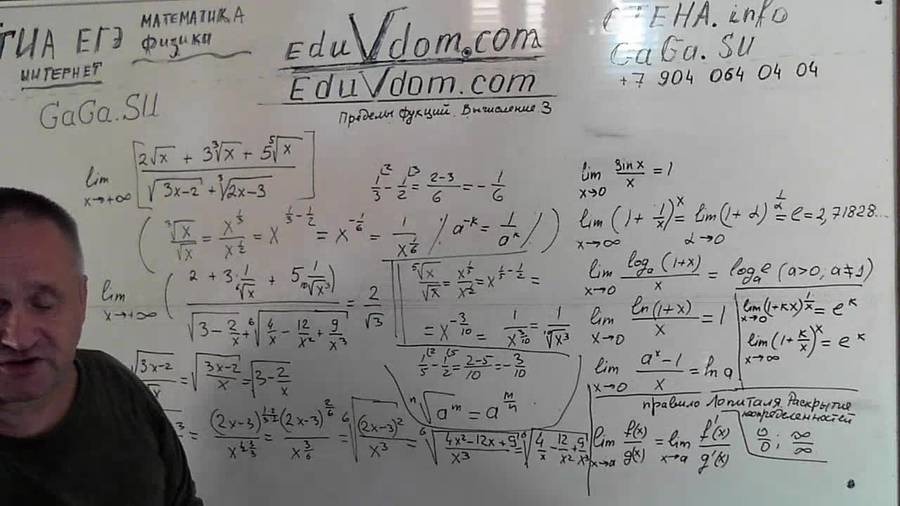 ГИА ЕГЭ
МАТЕМАТИКА
физика
ИНТЕРНЕТ
GaGa.SU
EduVdom.com
EduVdom.com
Пределы фукций. Вычисление 3
СТЕНА.info
GaGa.SU
+7 904 064 04 04
lim x→+∞ [(2√x + 3∛x + 5⁵√x)/(√(3x-2) + ∛(2x-3))]
1/3 - 1/2 = (2-3)/6 = -1/6
(∛x/√x = x^(1/3)/x^(1/2) = x^(1/3-1/2) = x^(-1/6) = 1/x^(1/6) / a^(-k) = 1/a^k /)
lim x→+∞ (2 + 3·1/⁶√x + 5·1/¹⁰√x³)/(√(3-2/x) + ⁶√(4/x - 12/x² + 9/x³)) = 2/√3
⁵√x/√x = x^(1/5)/x^(1/2) = x^(1/5-1/2) =
= x^(-3/10) = 1/x^(3/10) = 1/¹⁰√x³
1/5 - 1/2 = (2-5)/10 = -3/10
√(3x-2)/√x = √((3x-2)/x) = √(3-2/x)
ⁿ√a^m = a^(m/n)
= (2x-3)^(1/3·2/2)/x^(1/2·3/3) = (2x-3)^(2/6)/x^(3/6) = ⁶√((2x-3)²/x³) = ⁶√((4x²-12x+9)/x³) = ⁶√(4/x - 12/x² + 9/x³)
lim x→0 sin x/x = 1
lim x→∞ (1 + 1/x)^x = lim α→0 (1 + α)^(1/α) = e = 2,71828...
lim x→0 log_a(1+x)/x = log_a e (a>0, a≠1)
lim x→0 ln(1+x)/x = 1
lim x→0 (1+kx)^(1/x) = e^k
lim x→∞ (1+k/x)^x = e^k
lim x→0 (a^x-1)/x = ln a
правило Лопиталя Раскрытие
неопределенностей
lim x→a f(x)/g(x) = lim x→a f'(x)/g'(x)
0/0 ; ∞/∞